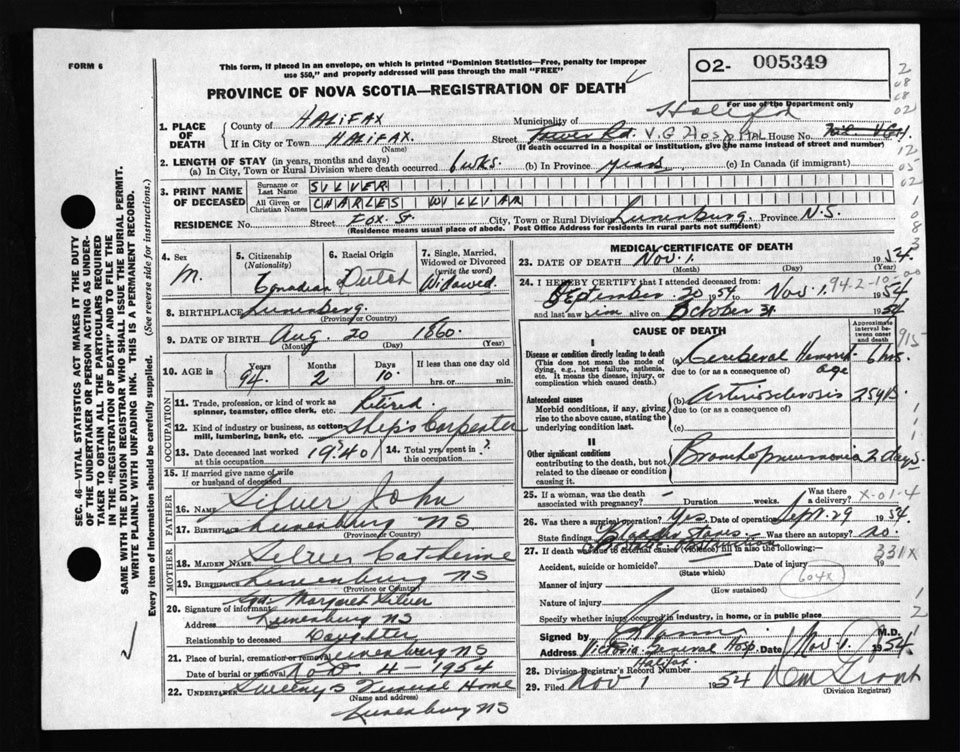 FORM 6
This form, if placed in an envelope, on which is printed "Dominion Statistics—Free, penalty for improper
use $50," and properly addressed will pass through the mail "FREE"
O2- 005349
For use of the Department only
PROVINCE OF NOVA SCOTIA—REGISTRATION OF DEATH
1. PLACE OF DEATH
County of HALIFAX Municipality of Halifax
If in City or Town HALIFAX. (Name) Street Tower Rd. V.G Hospital House No.
(If death occurred in a hospital or institution, give the name instead of street and number)
2. LENGTH OF STAY (in years, months and days)
(a) In City, Town or Rural Division where death occurred 6 wks. (b) In Province years (c) In Canada (if immigrant)
3. PRINT NAME OF DECEASED
Surname or Last Name SILVER
All Given or Christian Names CHARLES WILLIAM
RESIDENCE No. Street Fox St. City, Town or Rural Division Lunenburg. Province N.S.
(Residence means usual place of abode. Post Office Address for residents in rural parts not sufficient)
4. Sex M.
5. Citizenship (Nationality) Canadian
6. Racial Origin Dutch
7. Single, Married, Widowed or Divorced (write the word) Widowed.
8. BIRTHPLACE Lunenburg. (Province or Country)
9. DATE OF BIRTH Aug. 20 1860.
(Month) (Day) (Year)
10. AGE in Years 94. Months 2 Days 10. If less than one day old hrs. or min.
OCCUPATION
11. Trade, profession, or kind of work as spinner, teamster, office clerk, etc. Retired.
12. Kind of industry or business, as cotton mill, lumbering, bank, etc. Ship's Carpenter
13. Date deceased last worked at this occupation 1940 14. Total yrs. spent in this occupation ?
15. If married give name of wife or husband of deceased
FATHER
16. NAME Silver John
17. BIRTHPLACE Lunenburg NS
(Province or Country)
MOTHER
18. MAIDEN NAME Silver Catherine
19. BIRTHPLACE Lunenburg NS
(Province or Country)
20. Signature of informant Margaret Silver
Address Lunenburg NS
Relationship to deceased Daughter
21. Place of burial, cremation or removal Lunenburg NS
Date of burial or removal Nov 4 - 1954
22. UNDERTAKER Sweeny's Funeral Home
(Name and address)
Lunenburg NS
MEDICAL CERTIFICATE OF DEATH
23. DATE OF DEATH Nov. 1. 1954.
(Month) (Day) (Year)
24. I HEREBY CERTIFY that I attended deceased from:
September 20 1954 to Nov. 1. 1954
and last saw him alive on October 31. 1954
942-10-00
CAUSE OF DEATH
Approximate interval between onset and death
I
Disease or condition directly leading to death
(This does not mean the mode of dying, e.g., heart failure, asthenia, etc. It means the disease, injury, or complication which caused death.)
(a) Cerebral Hemorrhage 6 hrs.
due to (or as a consequence of)
Antecedent causes
Morbid conditions, if any, giving rise to the above cause, stating the underlying condition last.
(b) Arteriosclerosis 25 yrs.
due to (or as a consequence of)
(c)
II
Other significant conditions
contributing to the death, but not related to the disease or condition causing it.
Bronchopneumonia 2 days.
25. If a woman, was the death associated with pregnancy? Duration weeks. Was there a delivery?
X-01-4
26. Was there a surgical operation? Yes Date of operation Sept. 29 1954.
State findings Bladder Stones Was there an autopsy? no.
27. If death was due to external causes (violence) fill in also the following:—
331X
Accident, suicide or homicide? (State which) Date of injury 19
604X
Manner of injury (How sustained)
Nature of injury
Specify whether injury occurred in industry, in home, or in public place
Signed by M.D.
Address Victoria General Hosp. Date Nov. 1. 1954.
Halifax
28. Division Registrar's Record Number
29. Filed Nov 1 1954 Wm Grant
(Division Registrar)
SEC. 46—VITAL STATISTICS ACT MAKES IT THE DUTY
OF THE UNDERTAKER OR PERSON ACTING AS UNDER-
TAKER TO OBTAIN ALL THE PARTICULARS REQUIRED
IN THE "REGISTRATION OF DEATH" AND TO FILE THE
SAME WITH THE DIVISION REGISTRAR WHO SHALL ISSUE THE BURIAL PERMIT.
WRITE PLAINLY WITH UNFADING INK. THIS IS A PERMANENT RECORD.
Every item of information should be carefully supplied. (See reverse side for instructions.)
2
08
02
12
05
02
1
0
8
3
915
1
1
1
1
2